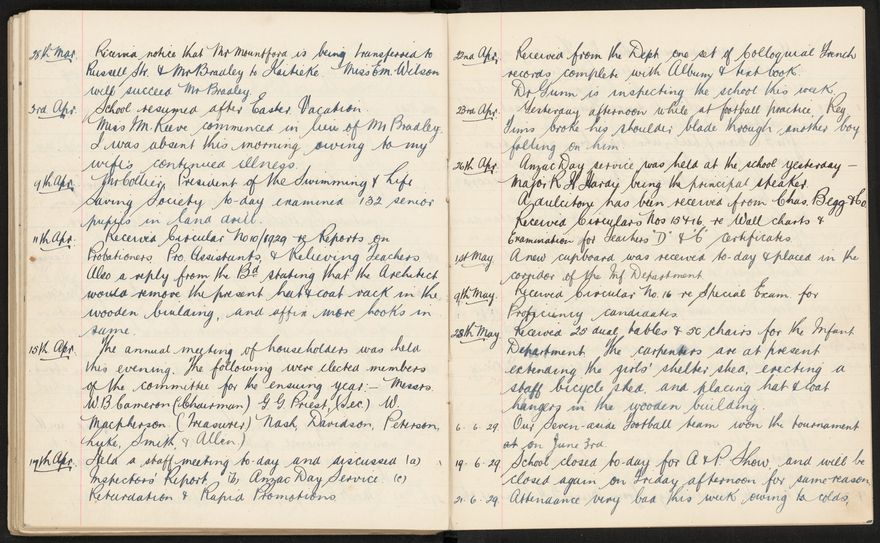 28th Mar. Receive notice that Mr Mountford is being transferred to
Russell St. & Mr Bradley to Kaitieke. Miss E.M. Wilson
will succeed Mr Bradley.
3rd Apr. School resumed after Easter Vacation.
Miss M. Reeve commenced in lieu of Mr Bradley.
I was absent this morning owing to my
wife's continued illness.
9th Apr. Mr Collier, President of the Swimming & Life
Saving Society to-day examined 132 senior
pupils in land drill.
11th Apr. Received Circular No 10/1929 re Reports on
Probationers, Pro. Assistants, & Relieving Teachers
Also a reply from the Bd stating that the Architect
would remove the present hat & coat rack in the
wooden building, and affix more hooks in
same.
15th Apr. The annual meeting of householders was held
this evening. The following were elected members
of the committee for the ensuing year:- Messrs
W.B. Cameron (Chairman) G.G. Priest, (Sec.) W.
Macpherson. (Treasurer) Nash, Davidson, Peterson,
Luke, Smith & Allen.)
19th Apr. Held a staff meeting to-day and discussed (a)
Inspectors' Report (b) Anzac Day Service (c)
Retardation & Rapid Promotions
22nd Apr. Received from the Dept one set of Colloquial French
records complete with Album & text book.
Dr Gunn is inspecting the school this week.
23rd Apr. Yesterday afternoon while at football practice, Reg
Sims broke his shoulder blade through another boy
falling on him
26th Apr. Anzac Day service was held at the school yesterday —
Major R. H. Hardy being the principal speaker.
A dulcitone has been received from Chas. Begg & Co
Received Circulars Nos 15 & 16 re Wall charts &
Examination for Teachers "D" & "C" Certificates.
1st May A new cupboard was received to-day & placed in the
corridor of the Inf. Department
9th May. Received Circular No. 16 re Special Exam. for
Proficiency candidates
28th May Received 25 dual tables & 50 chairs for the Infant
Department. The carpenters are at present
extending the girls' shelter shed, erecting a
staff bicycle shed, and placing hat & coat
hangers in the wooden building.
6.6.29 Our seven-aside football team won the tournament
at on June 3rd.
19.6.29 School closed to-day for A & P. Show, and will be
closed again on Friday afternoon for same reason.
21.6.29 Attendance very bad this week owing to colds,